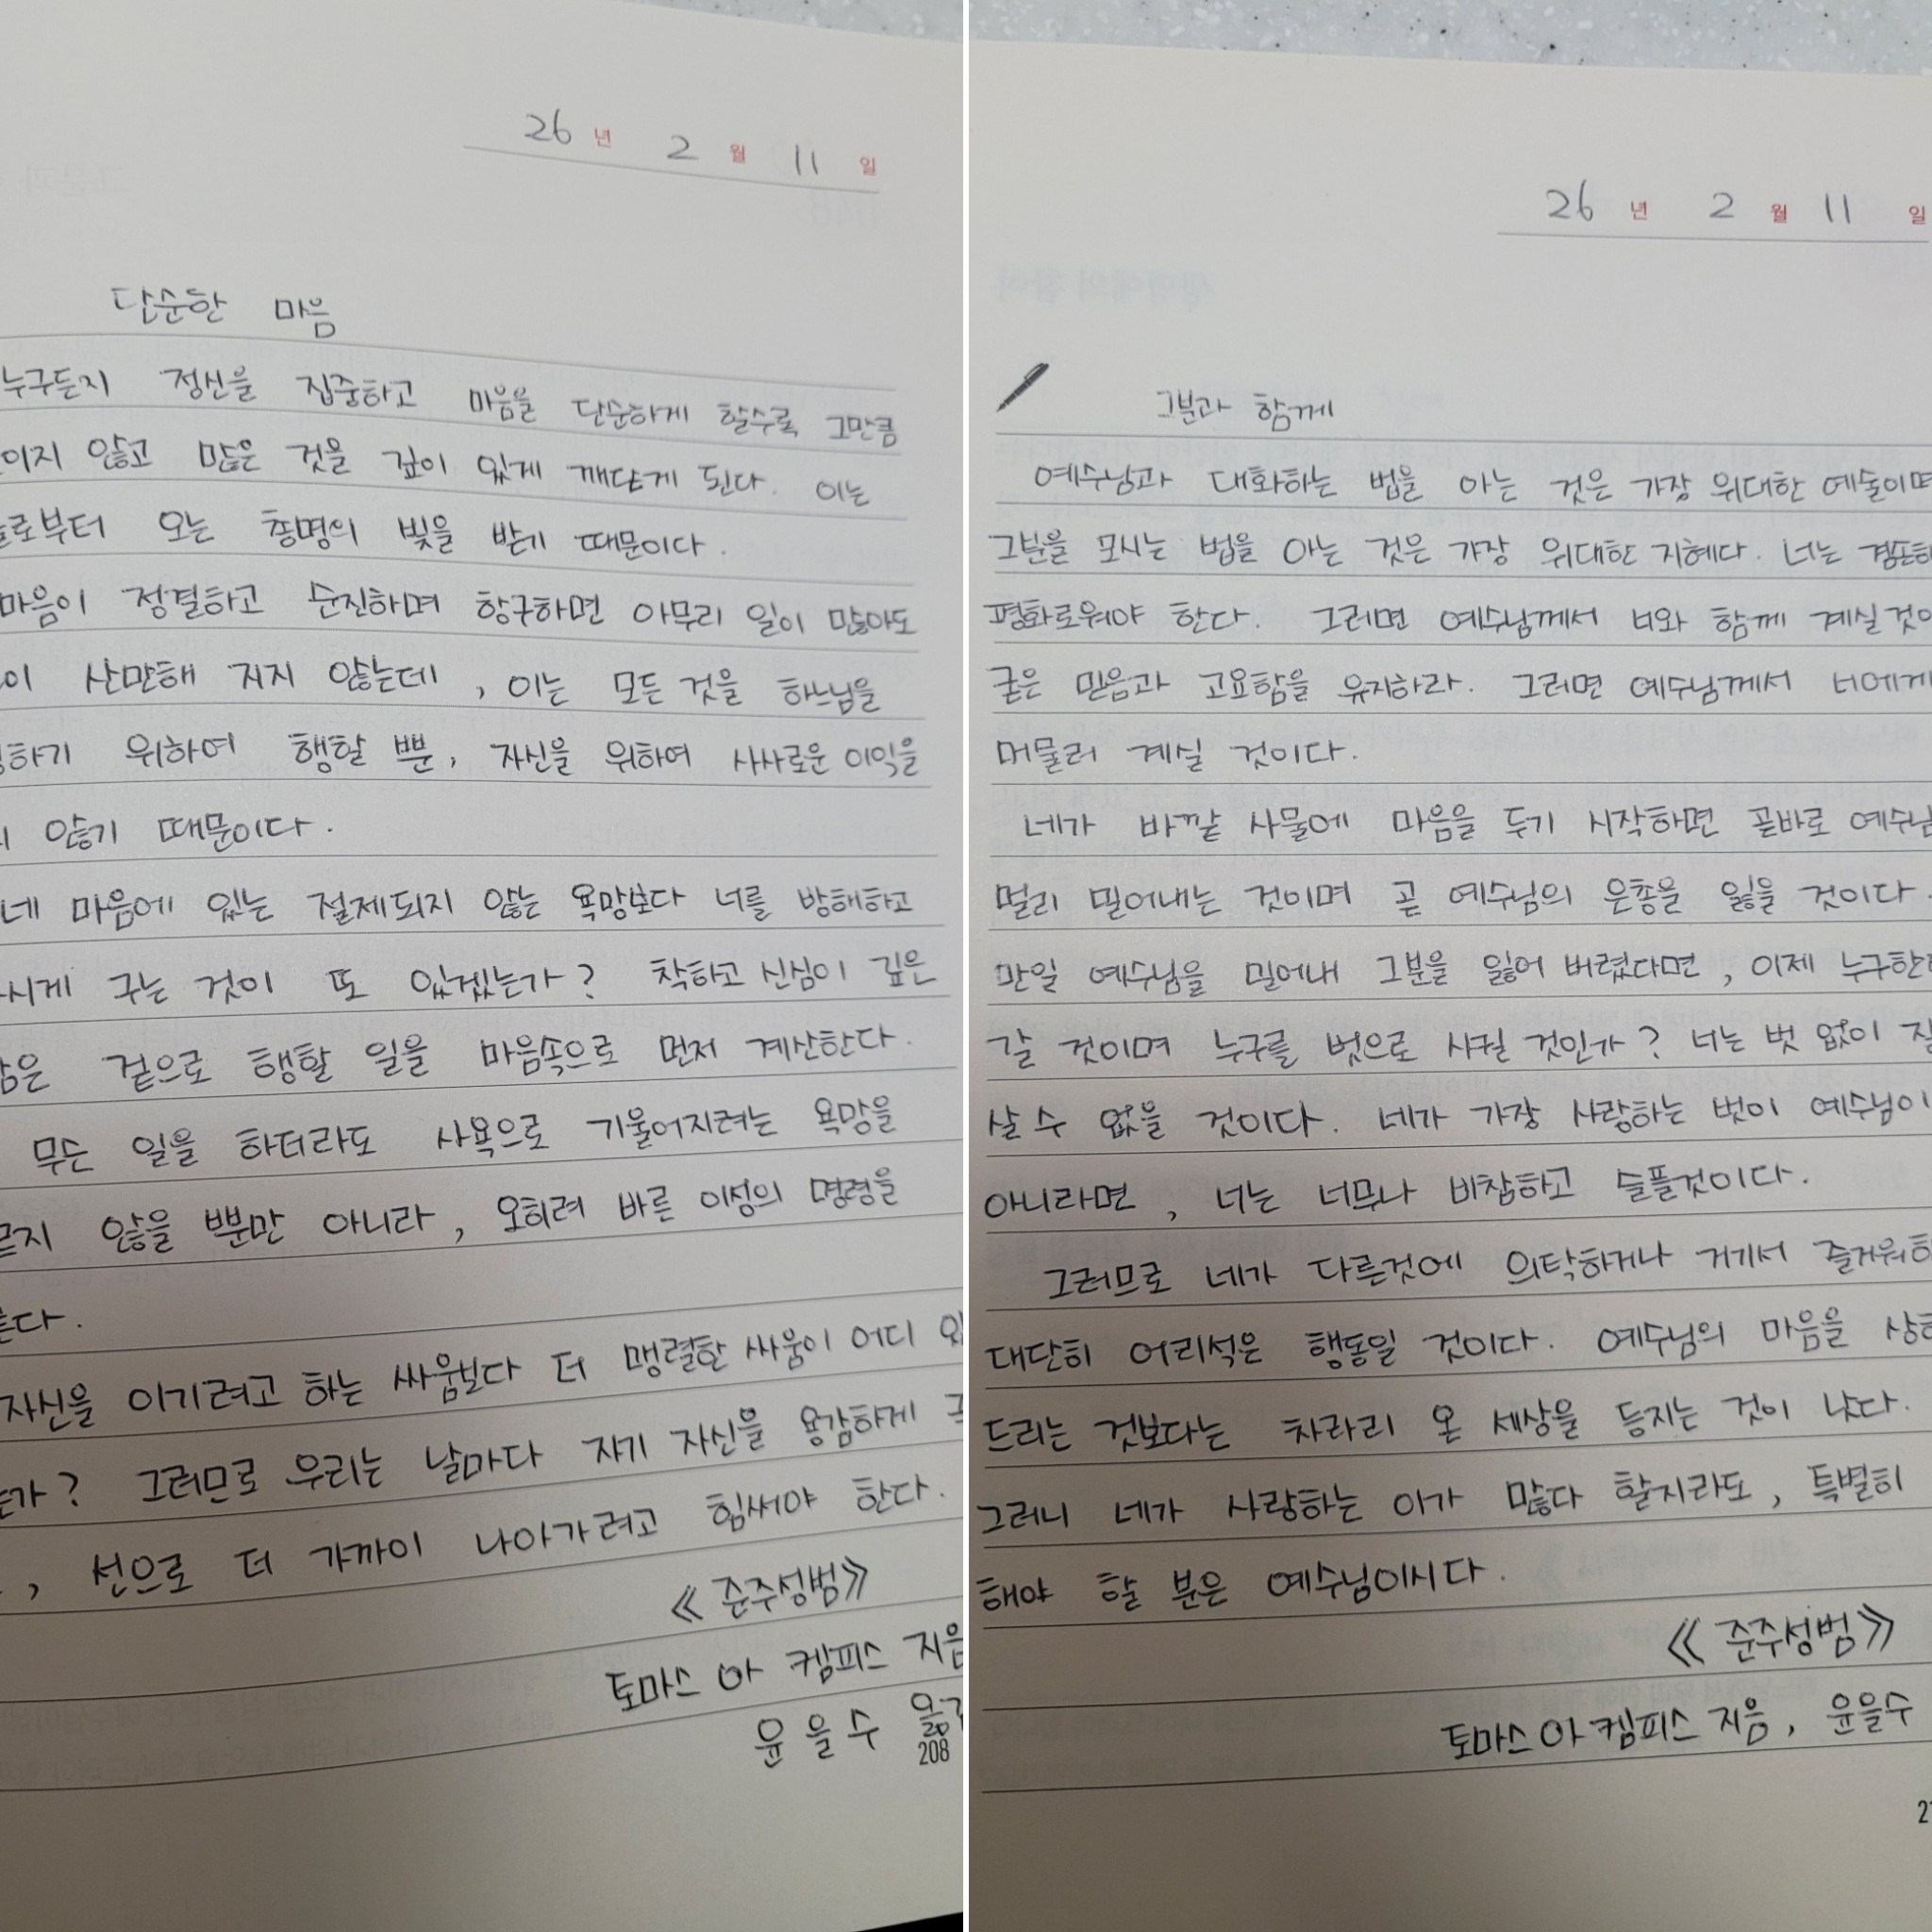 26 년 2 월 11 일
단순한 마음
누구든지 정신을 집중하고 마음을 단순하게 할수록 그만큼
이지 않고 많은 것을 깊이 있게 깨닫게 된다. 이는
로부터 오는 총명의 빛을 받기 때문이다.
마음이 정결하고 순진하며 항구하면 아무리 일이 많아도
이 산만해 지지 않는데, 이는 모든 것을 하느님을
하기 위하여 행할 뿐, 자신을 위하여 사사로운 이익을
않기 때문이다.
네 마음에 있는 절제되지 않는 욕망보다 너를 방해하고
시게 구는 것이 또 있겠는가? 착하고 신심이 깊은
은 겉으로 행할 일을 마음속으로 먼저 계산한다.
무슨 일을 하더라도 사욕으로 기울어지려는 욕망을
지 않을 뿐만 아니라, 오히려 바른 이성의 명령을
다.
자신을 이기려고 하는 싸움보다 더 맹렬한 싸움이 어디
가? 그러므로 우리는 날마다 자기 자신을 용감하게
, 선으로 더 가까이 나아가려고 힘써야 한다.
《준주성범》
토마스 아 켐피스 지음
윤을수
208
26 년 2 월 11 일
그분과 함께
예수님과 대화하는 법을 아는 것은 가장 위대한 예술이며
그분을 모시는 법을 아는 것은 가장 위대한 지혜다. 너는 겸손하
평화로워야 한다. 그러면 예수님께서 너와 함께 계실것이
굳은 믿음과 고요함을 유지하라. 그러면 예수님께서 너에게
머물러 계실 것이다.
네가 바깥 사물에 마음을 두기 시작하면 곧바로 예수님
멀리 밀어내는 것이며 곧 예수님의 은총을 잃을 것이다.
만일 예수님을 밀어내 그분을 잃어 버렸다면, 이제 누구한
갈 것이며 누구를 벗으로 사귈 것인가? 너는 벗 없이
살 수 없을 것이다. 네가 가장 사랑하는 벗이 예수님이
아니라면, 너는 너무나 비참하고 슬플것이다.
그러므로 네가 다른것에 의탁하거나 거기서 즐거워하
대단히 어리석은 행동일 것이다. 예수님의 마음을 상하
드리는 것보다는 차라리 온 세상을 등지는 것이 낫다.
그러니 네가 사랑하는 이가 많다 할지라도, 특별히
해야 할 분은 예수님이시다.
《준주성범》
토마스 아 켐피스 지음, 윤을수